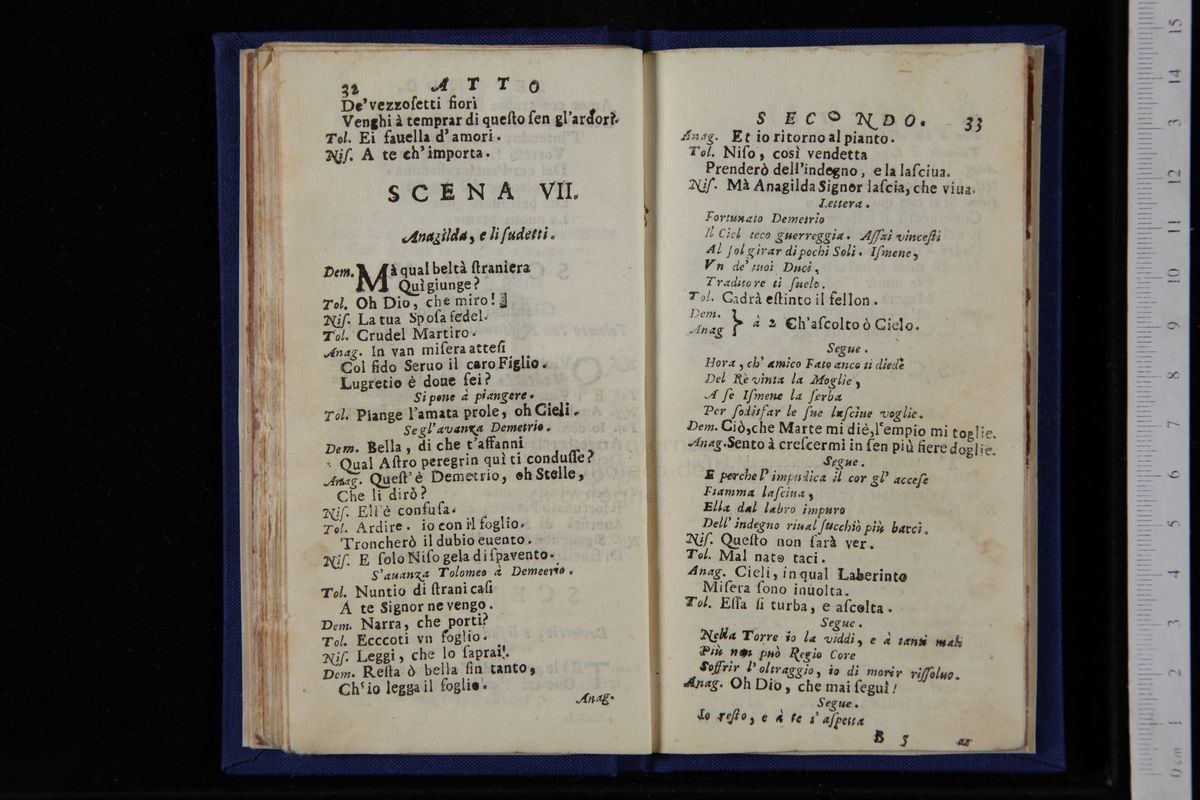 32 ATTO
De'vezzoſetti fiori
Venghi à temprar di queſto ſen gl'ardor?
Tol. Ei fauella d'amori.
Niſ. A te ch'importa.
SCENA VII.
Anagilda, e li ſudetti.
Dem. Mà qual beltà ſtraniera
Quì giunge?
Tol. Oh Dio, che miro!
Niſ. La tua Spoſa fedel.
Tol. Crudel Martiro.
Anag. In van miſera atteſi
Col fido Seruo il caro Figlio.
Lugretio è doue ſei?
Si pone à piangere.
Tol. Piange l'amata prole, oh Cieli.
Se gl'avanza Demetrio.
Dem. Bella, di che t'affanni
Qual Aſtro peregrin quì ti conduſſe?
Anag. Queſt'è Demetrio, oh Stelle,
Che li dirò?
Niſ. Ell'è confuſa.
Tol. Ardire. io con il foglio.
Troncherò il dubio euento.
Niſ. E ſolo Niſo gela di ſpavento.
S'auanza Tolomeo à Demeerio.
Tol. Nuntio di ſtrani caſi
A te Signor ne vengo.
Dem. Narra, che porti?
Tol. Ecccoti vn foglio.
Niſ. Leggi, che lo ſaprai!
Dem. Reſta ò bella ſin tanto,
Ch'io legga il foglio.
Anag.
SECONDO. 33
Anag. Et io ritorno al pianto.
Tol. Niſo, così vendetta
Prenderò dell'indegno, e la laſciua.
Niſ. Mà Anagilda Signor laſcia, che viua.
Lettera.
Fortunato Demetrio
Il Ciel teco guerreggia. Aſſai vinceſti
Al ſol girar di pochi Soli. Iſmene,
Vn de' tuoi Duci,
Traditore ti ſuelo.
Tol. Cadrà eſtinto il fellon.
Dem.
Anag } à 2 Ch'aſcolto ò Cielo.
Segue.
Hora, ch' amico Fato anco ti diede
Del Rè vinta la Moglie,
A ſe Iſmene la ſerba
Per ſodisfar le ſue laſciue voglie.
Dem. Ciò, che Marte mi diè, l'empio mi toglie.
Anag. Sento à creſcermi in ſen più fiere doglie.
Segue.
E perche l' impudica il cor gl' acceſe
Fiamma laſciua,
Ella dal labro impuro
Dell' indegno riual ſucchiò più bacci.
Niſ. Queſto non ſarà ver.
Tol. Mal nato taci.
Anag. Cieli, in qual Laberinto
Miſera ſono inuolta.
Tol. Eſſa ſi turba, e aſcolta.
Segue.
Nella Torre io la viddi, e à tanti mali
Più non può Regio Core
Soffrir l'oltraggio, io di morir riſſoluo.
Anag. Oh Dio, che mai ſeguì!
Segue.
Io reſto, e à te s'aſpetta
B 5